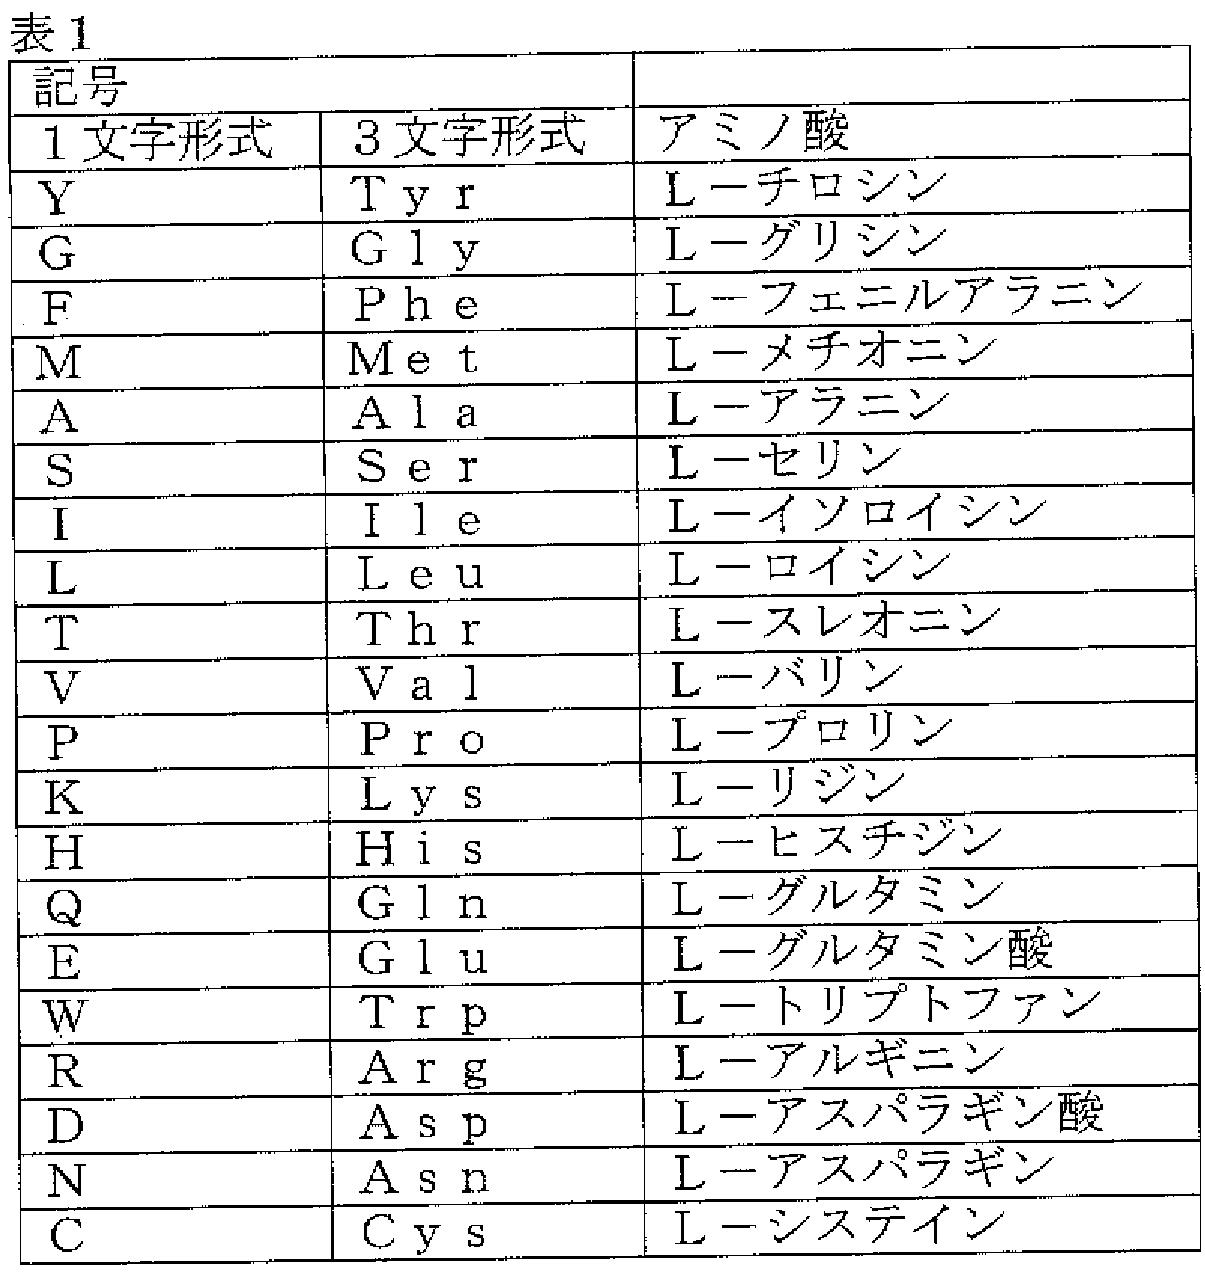 表1
記号
1文字形式 3文字形式 アミノ酸
Y Tyr L－チロシン
G Gly L－グリシン
F Phe L－フェニルアラニン
M Met L－メチオニン
A Ala L－アラニン
S Ser L－セリン
I Ile L－イソロイシン
L Leu L－ロイシン
T Thr L－スレオニン
V Val L－バリン
P Pro L－プロリン
K Lys L－リジン
H His L－ヒスチジン
Q Gln L－グルタミン
E Glu L－グルタミン酸
W Trp L－トリプトファン
R Arg L－アルギニン
D Asp L－アスパラギン酸
N Asn L－アスパラギン
C Cys L－システイン